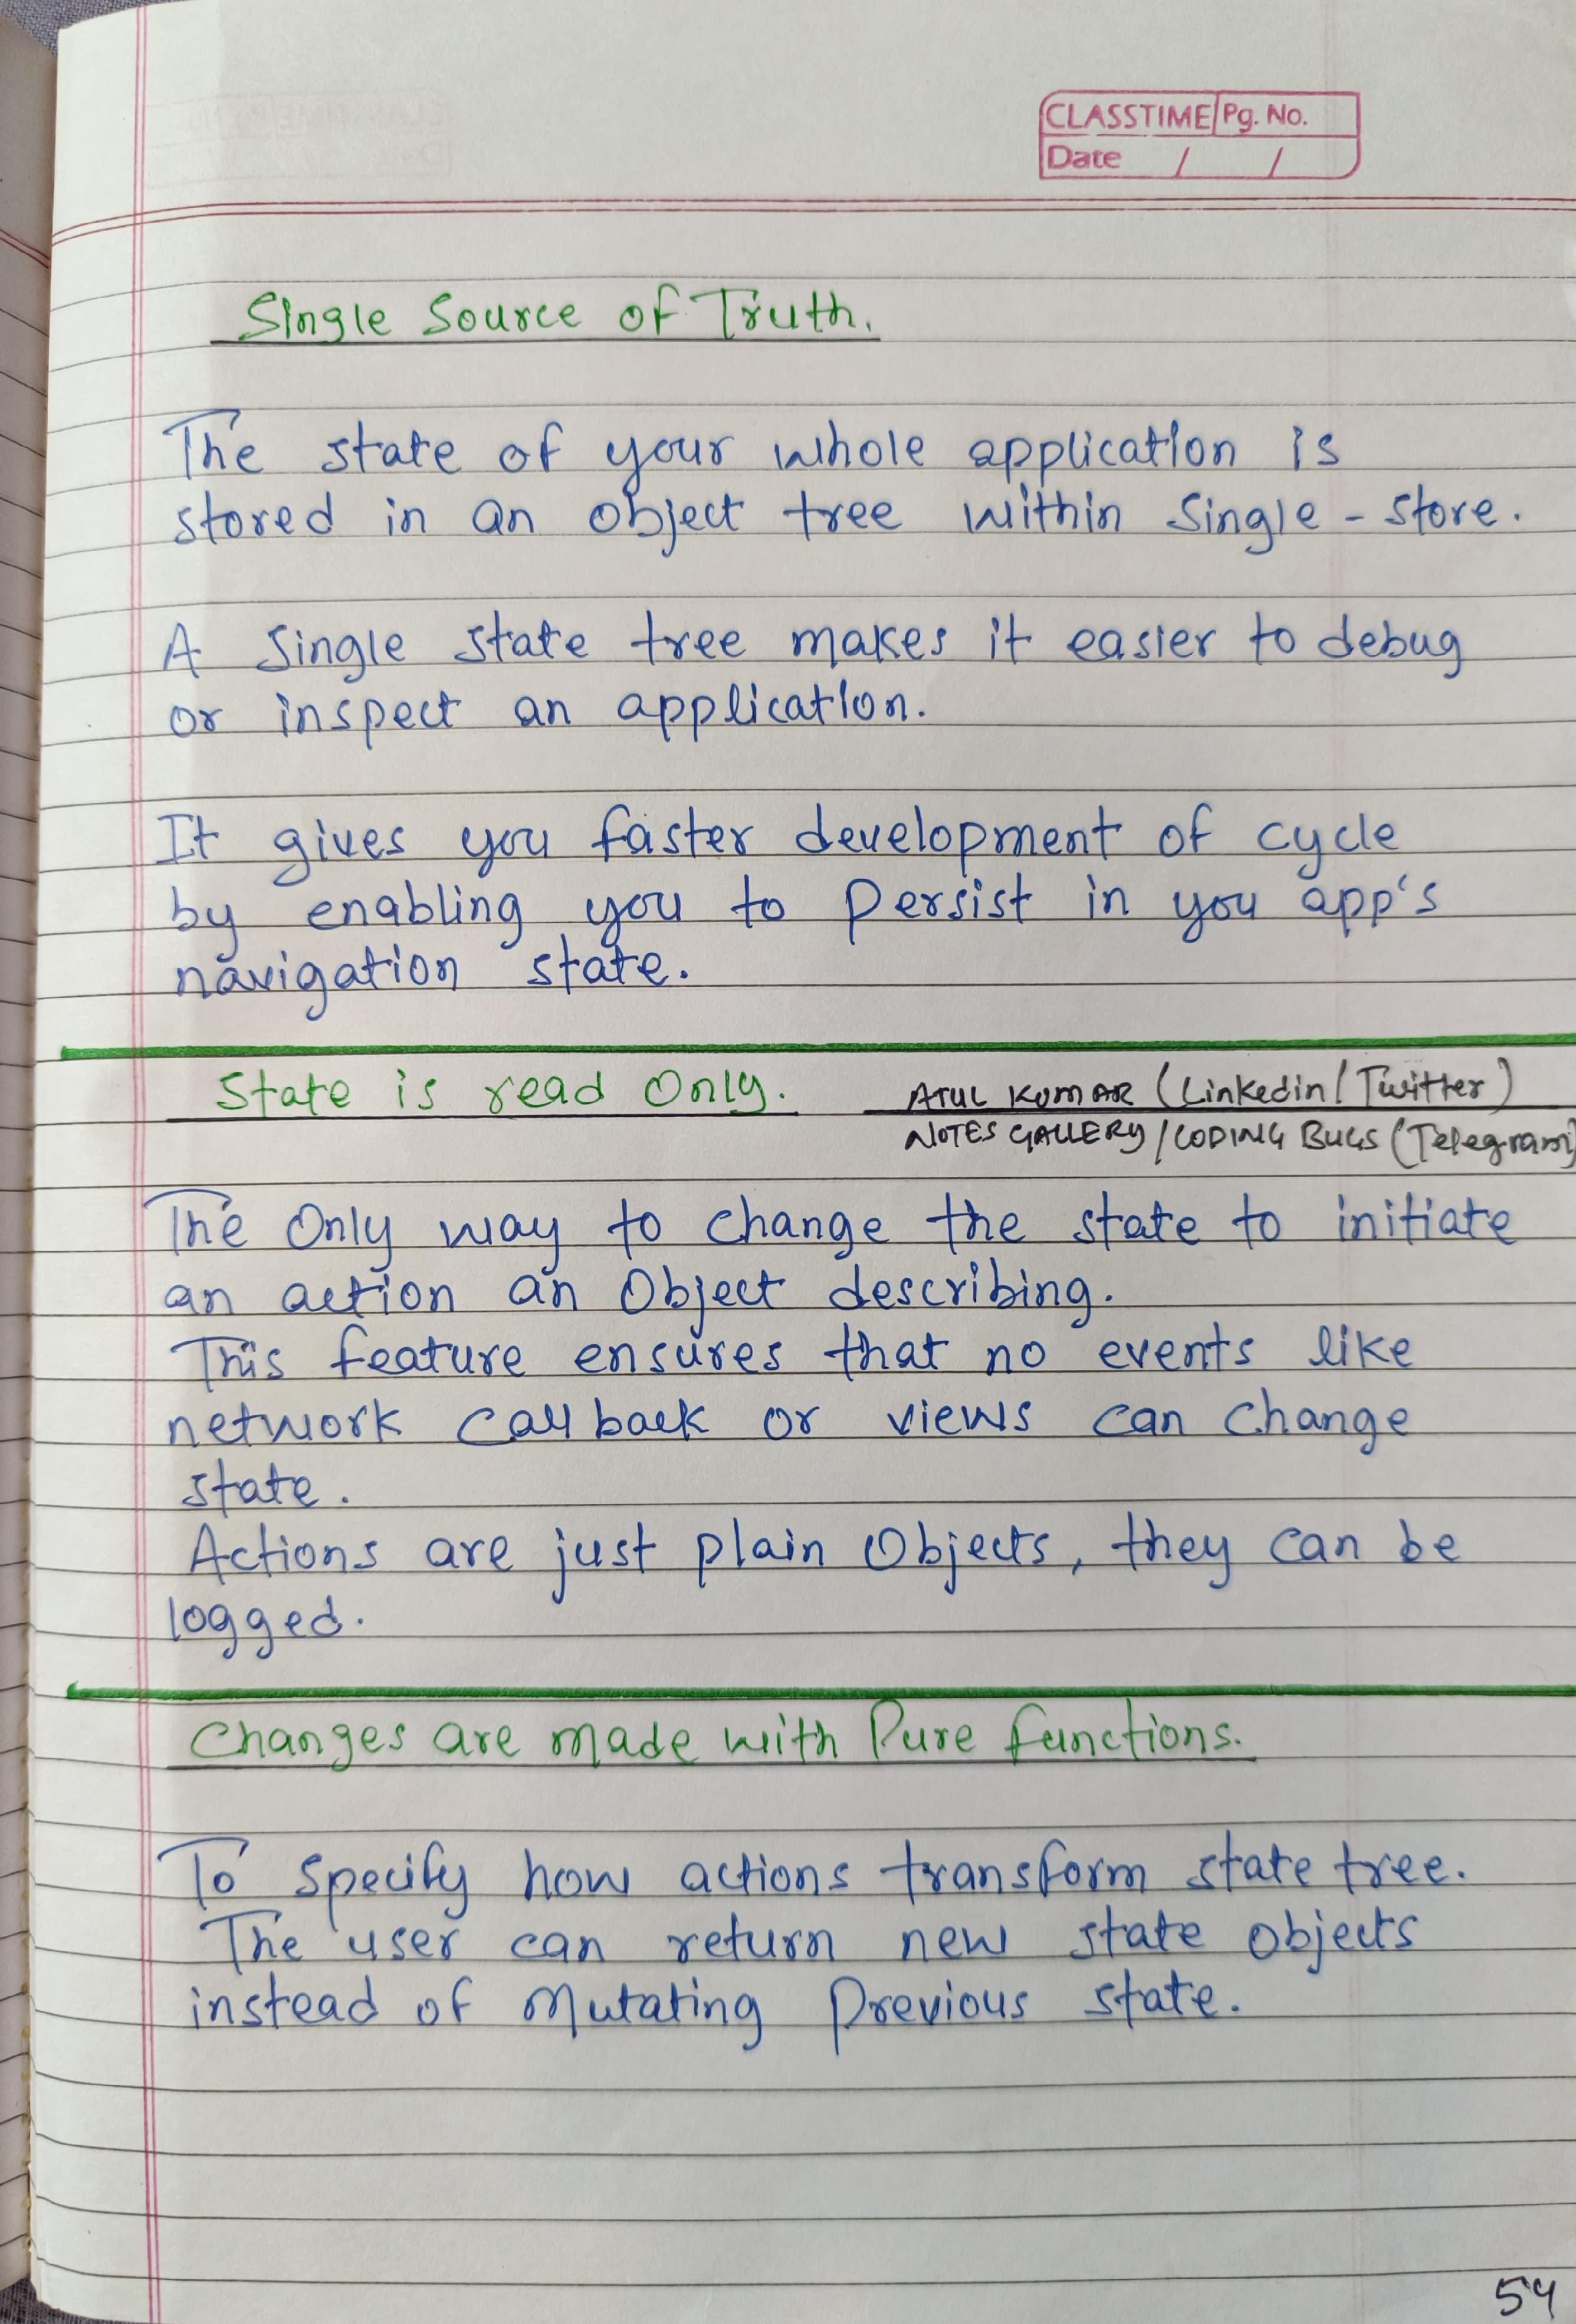 CLASSTIME Pg. No.
Date / /
Single Source of Truth.
The state of your whole application is
stored in an object tree within single - store.
A single state tree makes it easier to debug
or inspect an application.
It gives you faster development of cycle
by enabling you to persist in you app's
navigation state.
State is read Only.
ATUL KUMAR (Linkedin / Twitter)
NOTES GALLERY / CODING BUGS (Telegram)
The Only way to change the state to initiate
an action an Object describing.
This feature ensures that no events like
network call back or views can change
state.
Actions are just plain Objects, they can be
logged.
Changes are made with Pure functions.
To specify how actions transform state tree.
The user can return new state objects
instead of mutating previous state.
54